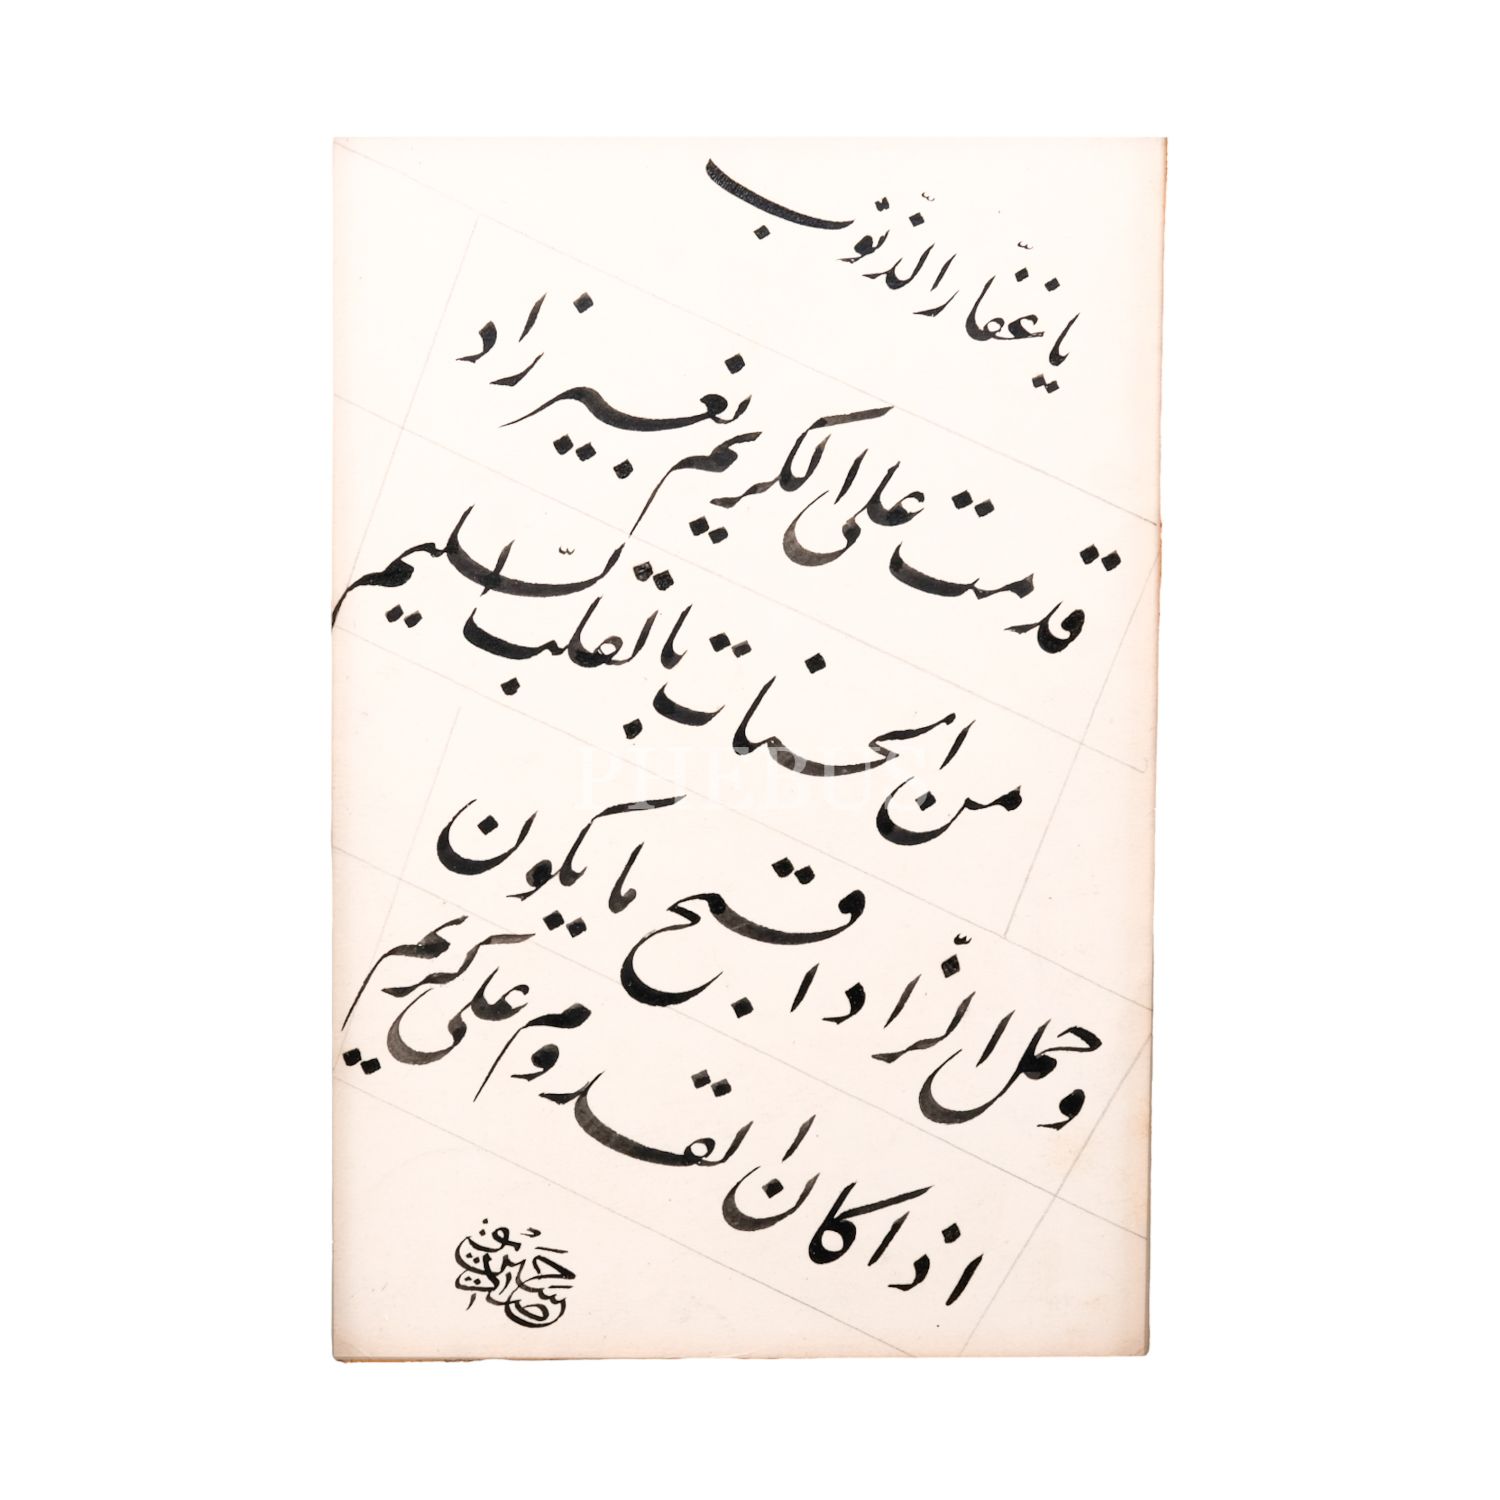 یا غفّار الذّنوب
قدمت علی الکریم بغیر زاد
من الحسنات بالقلب السّلیم
و حمل الزّاد اقبح ما یکون
اذا کان القدوم علی کریم
PHEBUS